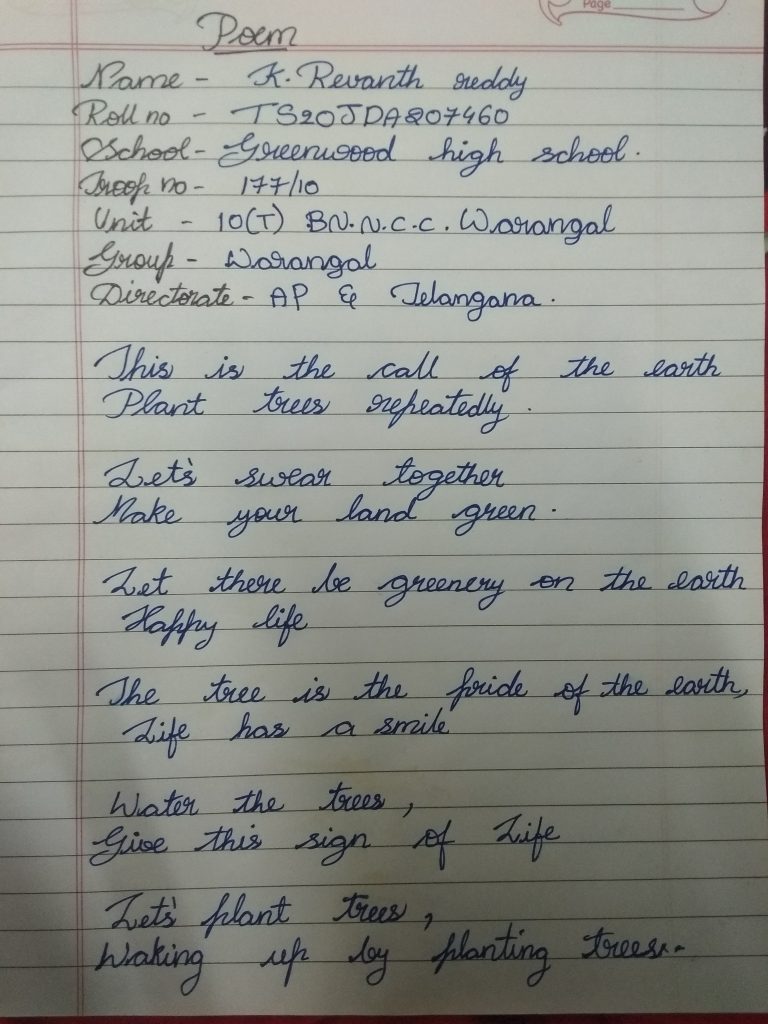 Page
Poem
Name - K. Revanth reddy
Roll no - TS20JDA807460
School - Greenwood high school.
Troop no - 177/10
Unit - 10(T) BN. N.C.C. Warangal
Group - Warangal
Directorate - AP & Telangana.
This is the call of the earth
Plant trees repeatedly.
Let's swear together
Make your land green.
Let there be greenery on the earth
Happy life
The tree is the pride of the earth,
Life has a smile
Water the trees,
Give this sign of Life
Let's plant trees,
Waking up by planting trees..